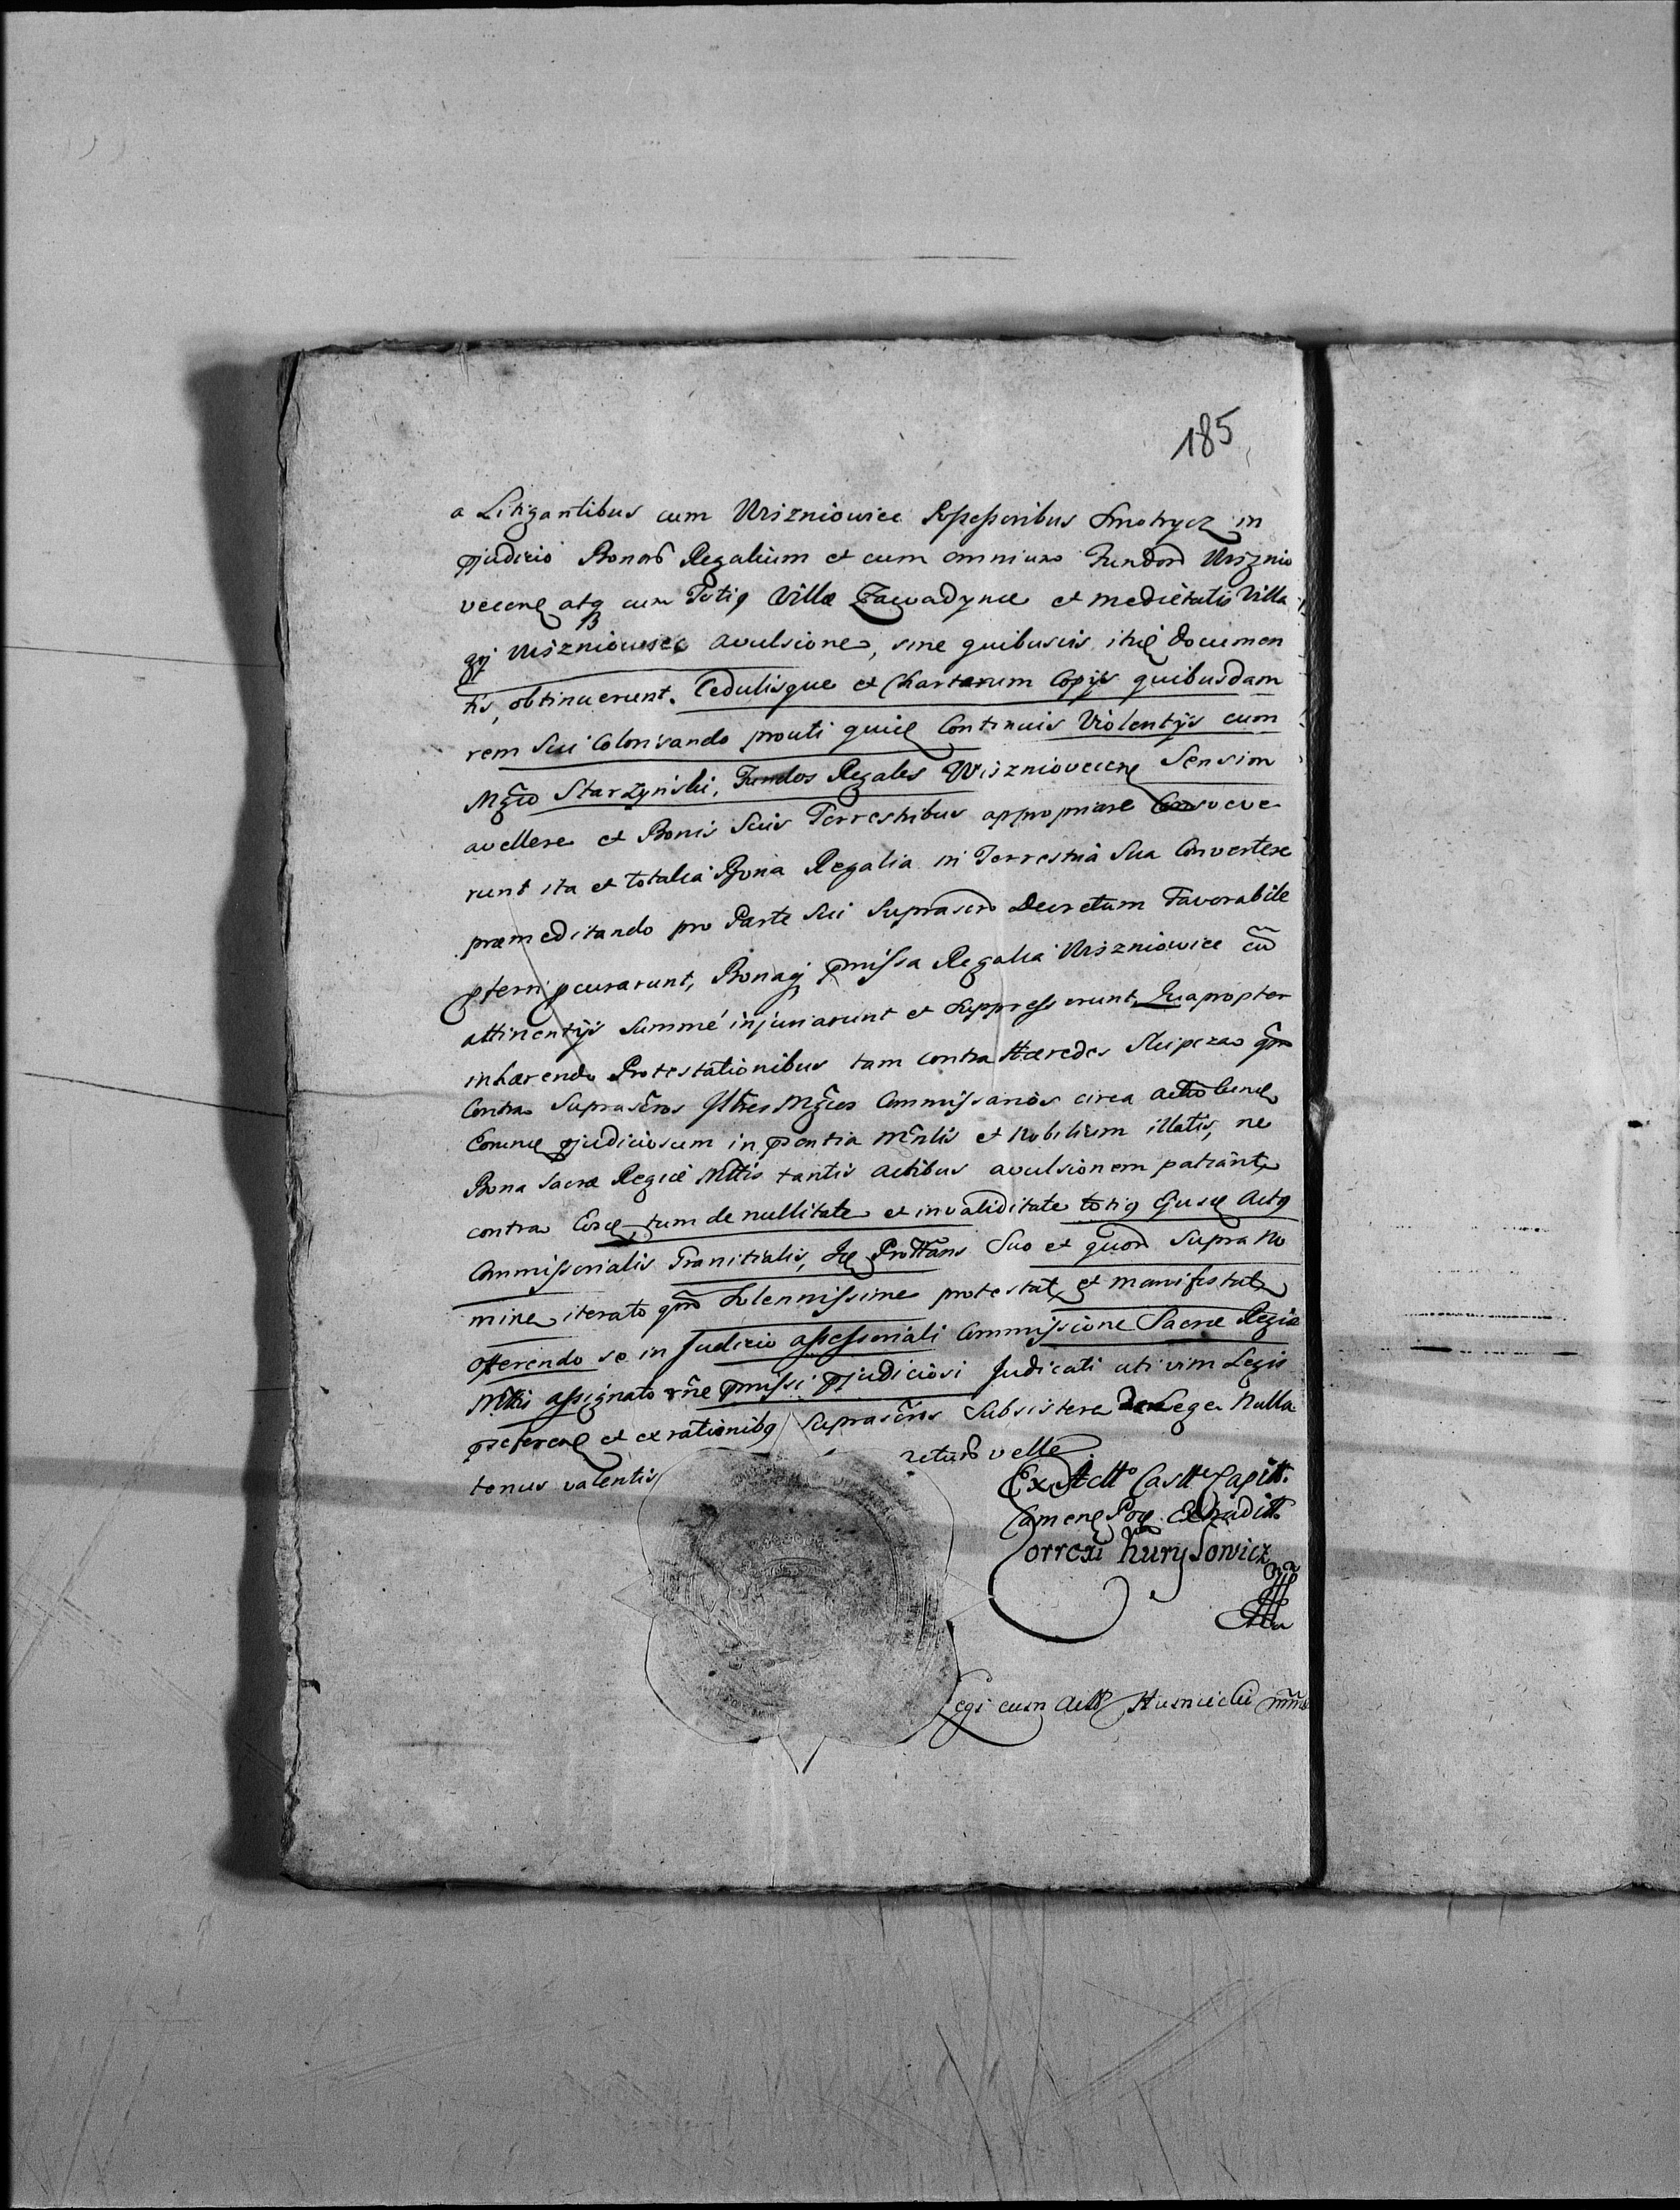 185
a Litigantibus cum Wiszniowiec Possessoribus Smotrycz in
pjudicio Bonor Regalium et cum omnium Fundor Wisznio
vecen atq cum Totiq Villæ Zawadynce et medietatis Villa
qj Wiszniowiec avulsione, sine quibusvis documen
tis, obtinuerunt. Cedulisque et Chartarum Copijs quibusdam
rem Sui Colorisando prouti Continuis Violentijs cum
Mgco Starzynski, Fundos Regales Wisznioveccen Sensim
avellere et Bonis Suis Terrestribus appropriare Consueve
runt ita et totalia Bona Regalia in Terrestria Sua Convertere
præmeditando pro Parte Sui Suprascro Decretum Favorabile
pcurarunt, Bonaqj pmissa Regalia Wiszniowice cū
attinentijs Summé injuriarunt et Suppresserunt Quapropter
inhærendo Protestationibus tam contra Hæredes qm
Contra Suprascros Illres Mgcos Commissarios circa
pjudiciosum in pntia et Nobilium illatis, ne
Bona Sacræ Regiæ Mttis tantis actibus avulsionem patiant
contra tum de nullitate et invaliditate totiq Actq
Commissorialis Granitialis, Suo et quor Supra No
mine iterato Solennissime protestat et manifestat
Offerendo se in Judicio assessoriali Commissione Sacræ Regiæ
Mttis assignato rne pmissi pjudiciosi Judicati uti vim Legis
et ex rationibq Suprascris Subsistere de Lege Nulla
tenus valentis
velle
Ex Actto Castr Capitt.
Camen Pod Extradit
Correxi Kurysowicz
Legi cum Actt mm